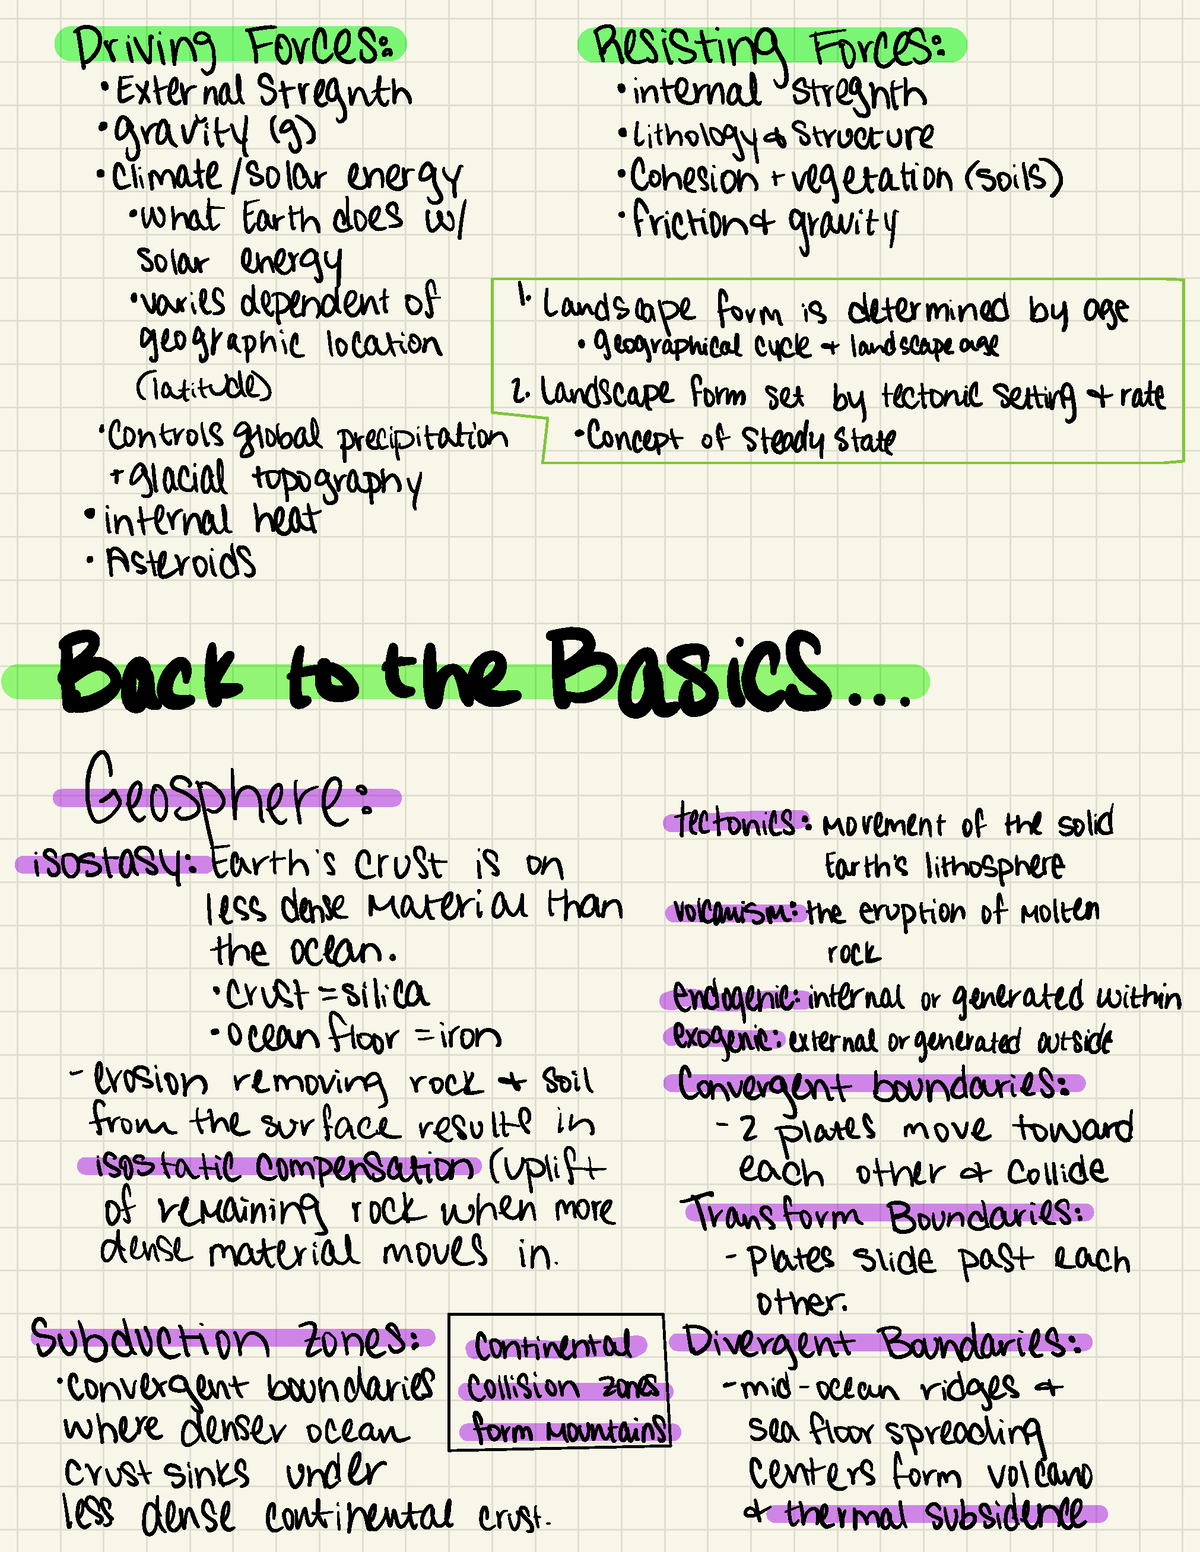 Driving Forces:
• External Stregnth
• gravity (g)
• Climate/Solar energy
• what Earth does w/
solar energy
• varies dependent of
geographic location
(latitude)
• Controls global precipitation
+ glacial topography
• internal heat
• Asteroids
Resisting Forces:
• internal stregnth
• Lithology & Structure
• Cohesion + vegetation (soils)
• friction & gravity
1. Landscape form is determined by age
• geographical cycle + landscape age
2. Landscape form set by tectonic setting + rate
• Concept of Steady State
Back to the Basics...
Geosphere:
isostasy: Earth's crust is on
less dense material than
the ocean.
• crust = silica
• ocean floor = iron
- erosion removing rock + soil
from the surface results in
isostatic compensation (uplift
of remaining rock when more
dense material moves in.
Subduction Zones:
• convergent boundaries
where denser ocean
crust sinks under
less dense continental crust.
Continental
collision zones
form mountains
tectonics: movement of the solid
Earth's lithosphere
volcanism: the eruption of molten
rock
endogenic: internal or generated within
exogenic: external or generated outside
Convergent boundaries:
- 2 plates move toward
each other & collide
Transform Boundaries:
- plates slide past each
other.
Divergent Boundaries:
- mid-ocean ridges +
sea floor spreading
centers form volcano
& thermal subsidence